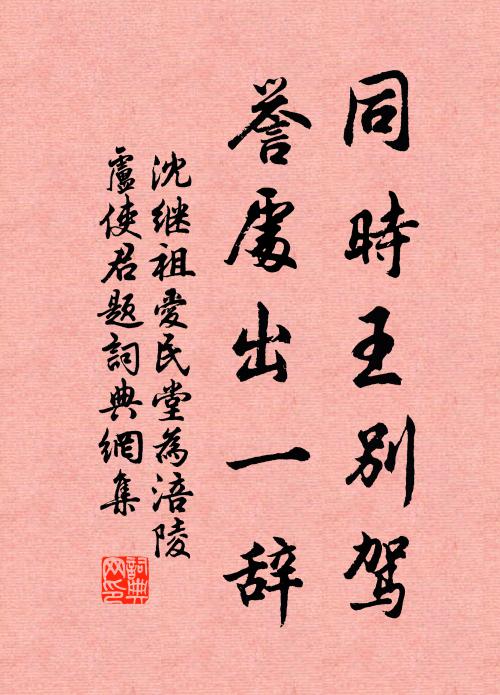 同時王別駕
誉處出一辞
沈继祖愛民堂為涪陵
盧使君題詞典網集
詞典网印